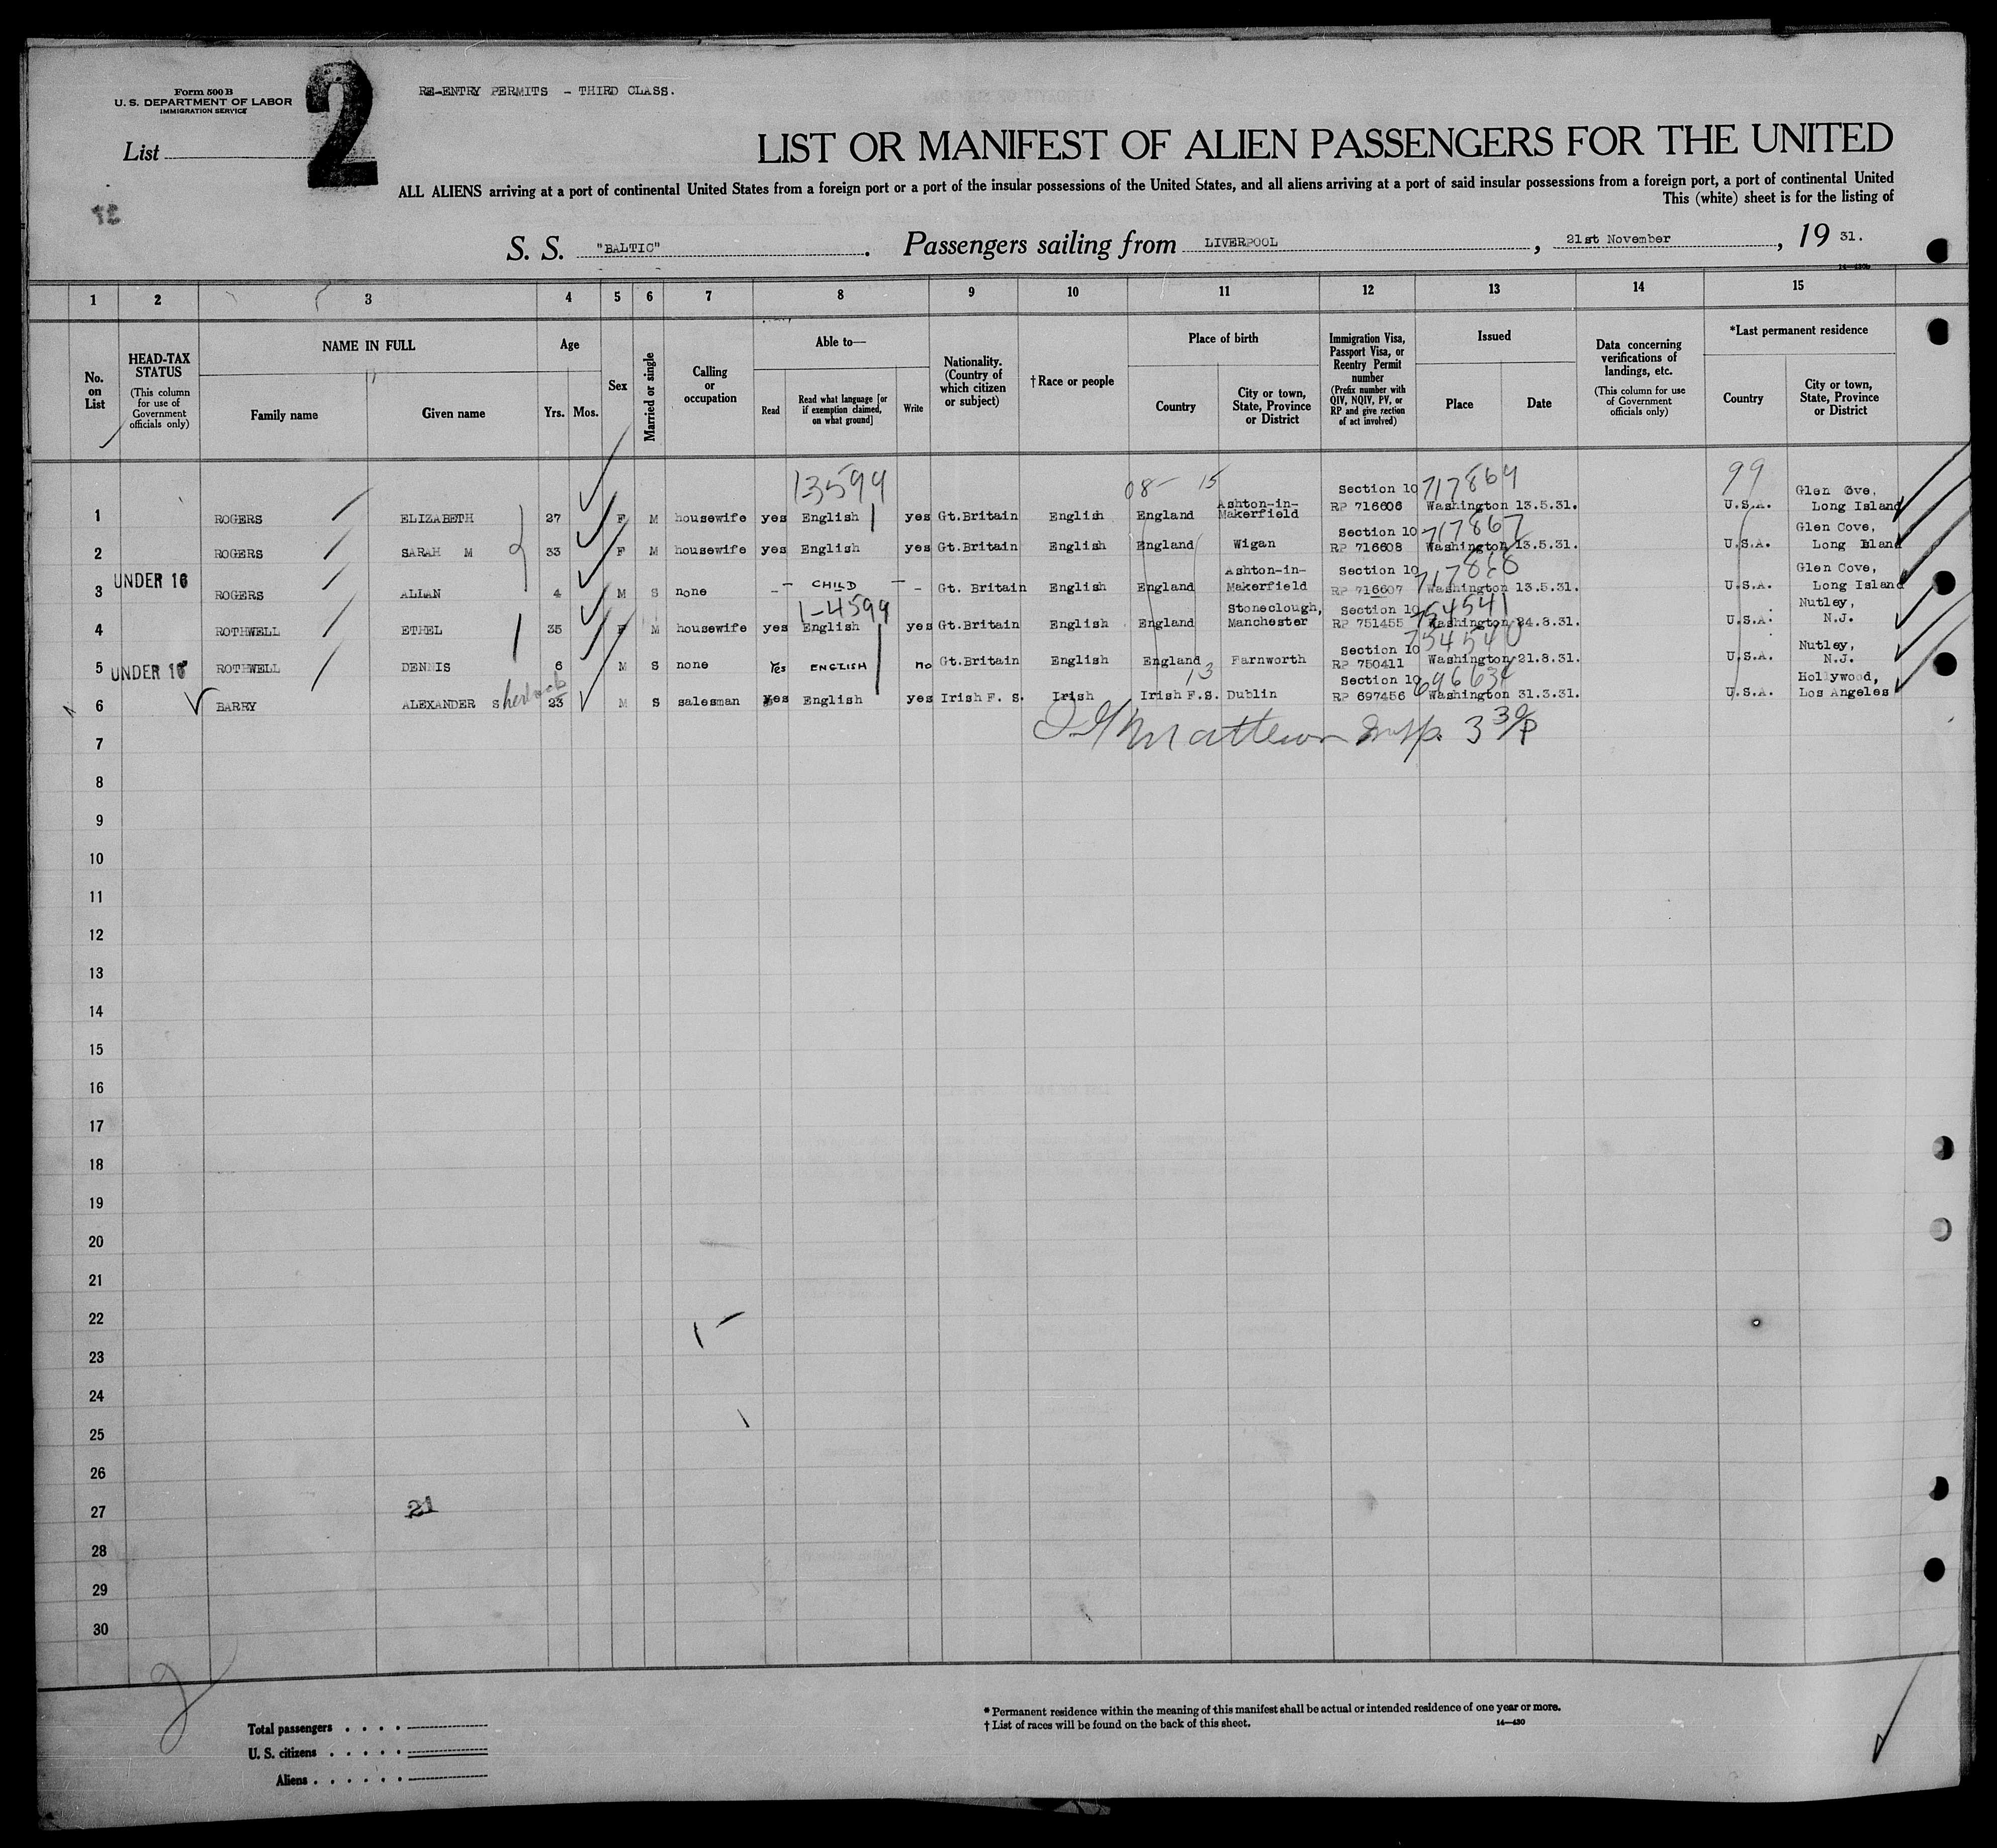 Form 500 B
U. S. DEPARTMENT OF LABOR
IMMIGRATION SERVICE
2
RE-ENTRY PERMITS - THIRD CLASS.
List
LIST OR MANIFEST OF ALIEN PASSENGERS FOR THE UNITED
ALL ALIENS arriving at a port of continental United States from a foreign port or a port of the insular possessions of the United States, and all aliens arriving at a port of said insular possessions from a foreign port, a port of continental United
This (white) sheet is for the listing of
S. S. "BALTIC". Passengers sailing from LIVERPOOL, 21st November, 19 31.
1 2 3 4 5 6 7 8 9 10 11 12 13 14 15
No. on List
HEAD-TAX STATUS (This column for use of Government officials only)
NAME IN FULL
Family name Given name
Age
Yrs. Mos.
Sex
Married or single
Calling or occupation
Able to—
Read
Read what language [or if exemption claimed, on what ground]
Write
Nationality. (Country of which citizen or subject)
†Race or people
Place of birth
Country
City or town, State, Province or District
Immigration Visa, Passport Visa, or Reentry Permit number (Prefix number with QIV, NQIV, PV, or RP and give section of act involved)
Issued
Place Date
Data concerning verifications of landings, etc. (This column for use of Government officials only)
*Last permanent residence
Country
City or town, State, Province or District
13599 08- 15 Section 10 717869 99 Glen Cove,
1 ROGERS ELIZABETH 27 F M housewife yes English yes Gt.Britain English England Ashton-in-Makerfield RP 716606 Washington 13.5.31. U.S.A. Long Island
Section 10 717867 Glen Cove,
2 ROGERS SARAH M 33 F M housewife yes English yes Gt.Britain English England Wigan RP 716608 Washington 13.5.31. U.S.A. Long Island
UNDER 16 Ashton-in- Section 10 717868 Glen Cove,
3 ROGERS ALLAN 4 M S none - - CHILD - - Gt. Britain English England Makerfield RP 716607 Washington 13.5.31. U.S.A. Long Island
1-4599 Stoneclough, Section 10 754541 Nutley,
4 ROTHWELL ETHEL 35 F M housewife yes English yes Gt.Britain English England Manchester RP 751455 Washington 24.8.31. U.S.A. N.J.
Section 10 754540 Nutley,
5 UNDER 16 ROTHWELL DENNIS 6 M S none Yes ENGLISH no Gt.Britain English England Farnworth RP 750411 Washington 21.8.31. U.S.A. N.J.
13 Section 10 696634 Hollywood,
6 BARRY ALEXANDER Sherlock 23 M S salesman yes English yes Irish F. S. Irish Irish F.S. Dublin RP 697456 Washington 31.3.31. U.S.A. Los Angeles
Insp. 3 30/P
7
8
9
10
11
12
13
14
15
16
17
18
19
20
21
22
23
24
25
26
27
21
28
29
30
2
Total passengers . . . .
U. S. citizens . . . . .
Aliens . . . . . .
* Permanent residence within the meaning of this manifest shall be actual or intended residence of one year or more.
† List of races will be found on the back of this sheet. 14—430